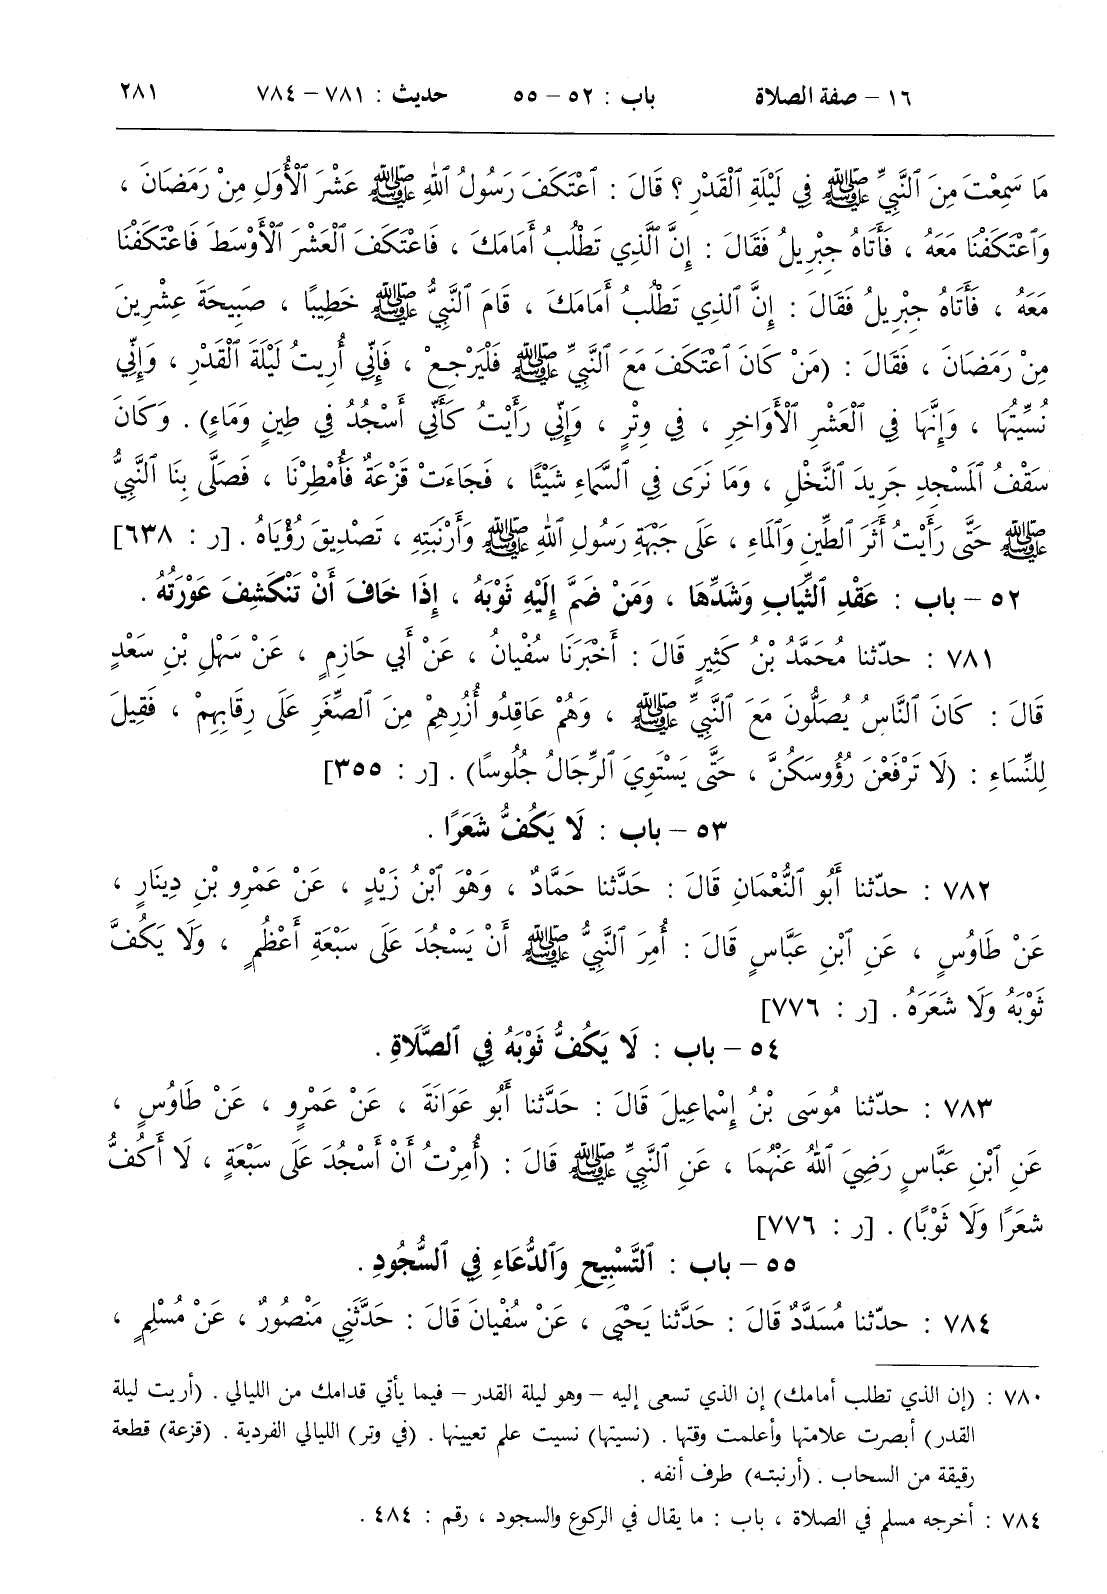 ١٦ – صفة الصلاة باب : ٥٢ – ٥٥ حديث : ٧٨١ – ٧٨٤ ٢٨١
مَا سَمِعْتَ مِنَ ٱلنَّبِيِّ ﷺ فِي لَيْلَةِ ٱلْقَدْرِ ؟ قَالَ : ٱعْتَكَفَ رَسُولُ ٱللهِ ﷺ عَشْرَ ٱلْأُوَلِ مِنْ رَمَضَانَ ،
وَٱعْتَكَفْنَا مَعَهُ ، فَأَتَاهُ جِبْرِيلُ فَقَالَ : إِنَّ ٱلَّذِي تَطْلُبُ أَمَامَكَ ، فَاعْتَكَفَ ٱلْعَشْرَ ٱلْأَوْسَطَ فَاعْتَكَفْنَا
مَعَهُ ، فَأَتَاهُ جِبْرِيلُ فَقَالَ : إِنَّ ٱلذِي تَطْلُبُ أَمَامَكَ ، قَامَ ٱلنَّبِيُّ ﷺ خَطِيبًا ، صَبِيحَةَ عِشْرِينَ
مِنْ رَمَضَانَ ، فَقَالَ : (مَنْ كَانَ ٱعْتَكَفَ مَعَ ٱلنَّبِيِّ ﷺ فَلْيَرْجِعْ ، فَإِنِّي أُرِيتُ لَيْلَةَ ٱلْقَدْرِ ، وَإِنِّي
نُسِّيتُهَا ، وَإِنَّهَا فِي ٱلْعَشْرِ ٱلْأَوَاخِرِ ، فِي وِتْرٍ ، وَإِنِّي رَأَيْتُ كَأَنِّي أَسْجُدُ فِي طِينٍ وَمَاءٍ) . وَكَانَ
سَقْفُ ٱلمَسْجِدِ جَرِيدَ ٱلنَّخْلِ ، وَمَا نَرَى فِي ٱلسَّمَاءِ شَيْئًا ، فَجَاءَتْ قَزْعَةٌ فَأُمْطِرْنَا ، فَصَلَّى بِنَا ٱلنَّبِيُّ
ﷺ حَتَّى رَأَيْتُ أَثَرَ ٱلطِّينِ وَٱلمَاءِ ، عَلَى جَبْهَةِ رَسُولِ ٱللهِ ﷺ وَأَرْنَبَتِهِ ، تَصْدِيقَ رُؤْيَاهُ . [ر : ٦٣٨]
٥٢ – باب : عَقْدِ ٱلثِّيَابِ وَشَدِّهَا ، وَمَنْ ضَمَّ إِلَيْهِ ثَوْبَهُ ، إِذَا خَافَ أَنْ تَنْكَشِفَ عَوْرَتُهُ .
٧٨١ : حدّثنا مُحَمَّدُ بْنُ كَثِيرٍ قَالَ : أَخْبَرَنَا سُفْيَانُ ، عَنْ أَبِي حَازِمٍ ، عَنْ سَهْلِ بْنِ سَعْدٍ
قَالَ : كَانَ ٱلنَّاسُ يُصَلُّونَ مَعَ ٱلنَّبِيِّ ﷺ ، وَهُمْ عَاقِدُو أُزُرِهِمْ مِنَ ٱلصِّغَرِ عَلَى رِقَابِهِمْ ، فَقِيلَ
لِلنِّسَاءِ : (لَا تَرْفَعْنَ رُؤُوسَكُنَّ ، حَتَّى يَسْتَوِيَ ٱلرِّجَالُ جُلُوسًا) . [ر : ٣٥٥]
٥٣ – باب : لَا يَكُفُّ شَعَرًا .
٧٨٢ : حدّثنا أَبُو ٱلنُّعْمَانِ قَالَ : حَدَّثنا حَمَّادٌ ، وَهْوَ ٱبْنُ زَيْدٍ ، عَنْ عَمْرِو بْنِ دِينَارٍ ،
عَنْ طَاوُسٍ ، عَنِ ٱبْنِ عَبَّاسٍ قَالَ : أُمِرَ ٱلنَّبِيُّ ﷺ أَنْ يَسْجُدَ عَلَى سَبْعَةِ أَعْظُمٍ ، وَلَا يَكُفَّ
ثَوْبَهُ وَلَا شَعَرَهُ . [ر : ٧٧٦]
٥٤ – باب : لَا يَكُفُّ ثَوْبَهُ فِي ٱلصَّلَاةِ .
٧٨٣ : حدّثنا مُوسَى بْنُ إِسْمَاعِيلَ قَالَ : حَدَّثنا أَبُو عَوَانَةَ ، عَنْ عَمْرٍو ، عَنْ طَاوُسٍ ،
عَنِ ٱبْنِ عَبَّاسٍ رَضِيَ ٱللهُ عَنْهُمَا ، عَنِ ٱلنَّبِيِّ ﷺ قَالَ : (أُمِرْتُ أَنْ أَسْجُدَ عَلَى سَبْعَةٍ ، لَا أَكُفُّ
شَعَرًا وَلَا ثَوْبًا) . [ر : ٧٧٦]
٥٥ – باب : ٱلتَّسْبِيحِ وَٱلدُّعَاءِ فِي ٱلسُّجُودِ .
٧٨٤ : حدّثنا مُسَدَّدٌ قَالَ : حَدَّثنا يَحْيَى ، عَنْ سُفْيَانَ قَالَ : حَدَّثَنِي مَنْصُورٌ ، عَنْ مُسْلِمٍ ،
٧٨٠ : (إن الذي تطلب أمامك) إن الذي تسعى إليه – وهو ليلة القدر – فيما يأتي قدامك من الليالي . (أريت ليلة
القدر) أبصرت علامتها وأعلمت وقتها . (نسيتها) نسيت علم تعيينها . (في وتر) الليالي الفردية . (قزعة) قطعة
رقيقة من السحاب . (أرنبته) طرف أنفه .
٧٨٤ : أخرجه مسلم في الصلاة ، باب : ما يقال في الركوع والسجود ، رقم : ٤٨٤ .